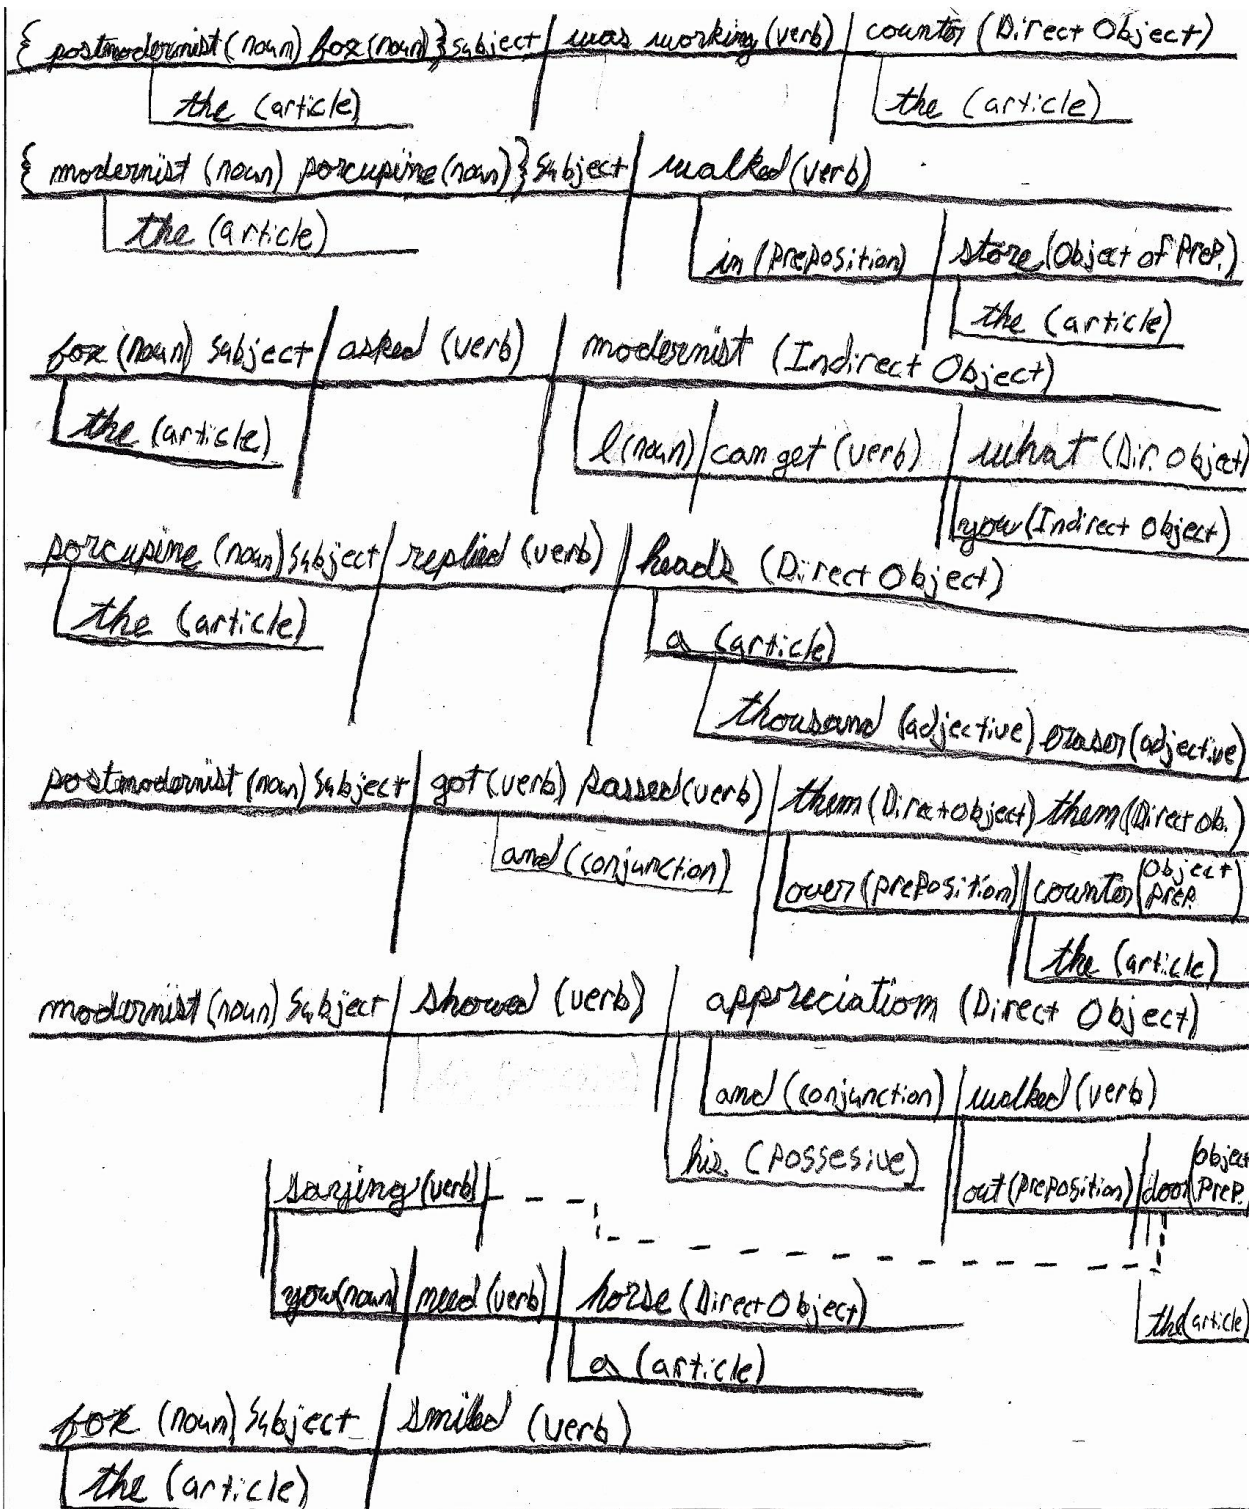 { postmodernist (noun) fox (noun) } subject / was working (verb) / counter (Direct Object)
the (article) the (article)
{ modernist (noun) porcupine (noun) } Subject / walked (verb)
the (article) in (Preposition) store (Object of Prep.)
the (article)
fox (noun) Subject / asked (verb) / modernist (Indirect Object)
the (article) I (noun) / can get (verb) / what (Dir. Object)
you (Indirect Object)
porcupine (noun) Subject / replied (verb) / heads (Direct Object)
the (article) a (article)
thousand (adjective) eraser (adjective)
postmodernist (noun) Subject / got (verb) passed (verb) / them (Direct Object) them (Direct Ob.)
and (conjunction) over (preposition) / counter (Object Prep.
the (article)
modernist (noun) Subject / showed (verb) / appreciation (Direct Object)
and (conjunction) / walked (verb)
his (Possesive) out (preposition) / door (Object Prep.
saying (verb)
you (noun) / need (verb) / horse (Direct Object) the (article)
a (article)
fox (noun) Subject / smiled (verb)
the (article)